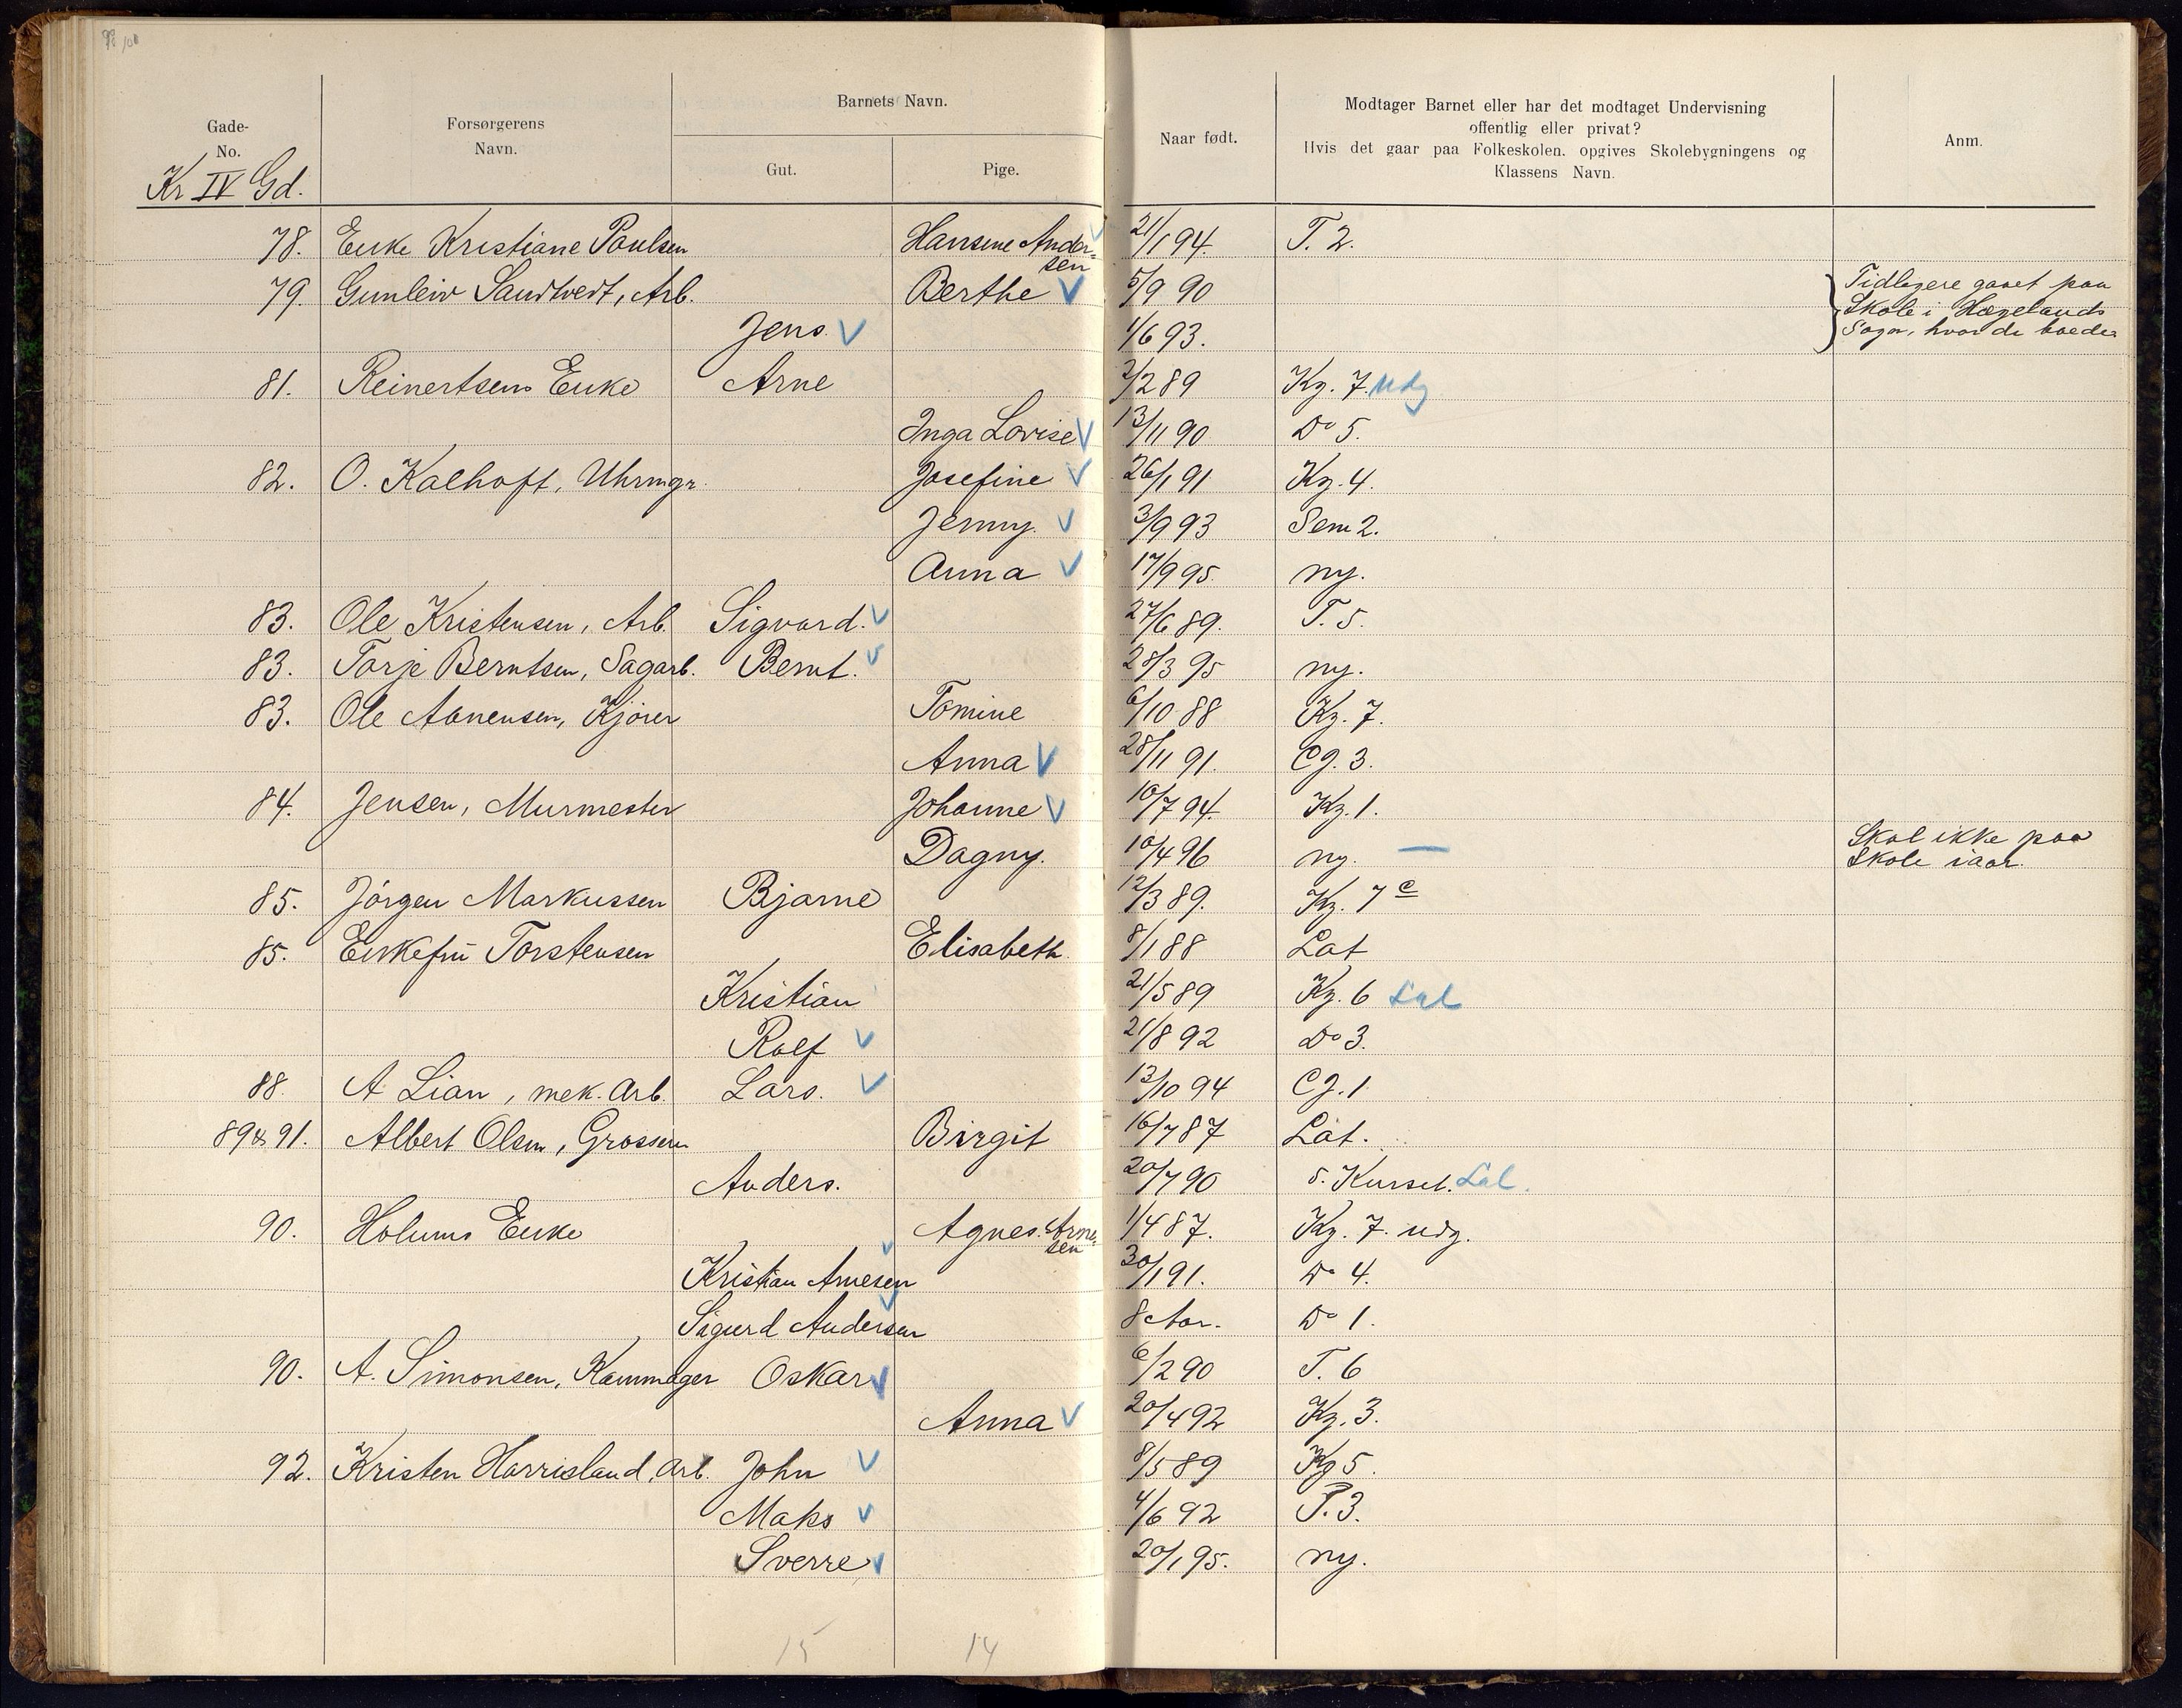 Gade-
No.
Kr IV Gd.
Forsørgerens
Navn.
Barnets Navn.
Gut.
Pige.
Naar født.
Modtager Barnet eller har det modtaget Undervisning
offentlig eller privat?
Hvis det gaar paa Folkeskolen. opgives Skolebygningens og
Klassens Navn.
Anm.
78. Enke Kristiane Paulsen Hansine Ander- 21/1 94. T. 2.
sen
79. Gunleiv Sandtvedt, Arb. Berthe V 5/9 90 Tidligere gaaet paa
Skole i Hægelands
Jens. V 1/6 93. Sogn, hvor de boede
81. Reinertsens Enke Arne 2/2 89 Kg. 7. udg
Inga Lovise V 13/11 90 Do 5.
82. O. Kalhoft, Uhrmgr. Josefine V 26/1 91 Kg. 4.
Jenny. V 3/9 93 Sem 2.
Anna V 17/9 95 ny.
83. Ole Kristensen, Arb. Sigvard. V 27/6 89. T. 5.
83. Torje Berntsen, Sagarb. Bernt. V 28/3 95 ny.
83. Ole Aanensen, Kjører Tomine 6/10 88 Kg. 7.
Anna V 28/11 91. Cg. 3.
84. Jensen, Murmester Johanne V 10/7 94. Kg. 1.
Dagny. 10/4 96 ny. — Skal ikke paa
Skole iaar.
85. Jörgen Markussen Bjarne 12/3 89. Kg. 7 c
85. Enkefru Torstensen Elisabeth 8/1 88 Lat
Kristian 21/5 89 Kg. 6 Lat
Rolf V 21/8 92 Do 3.
88. A Lian, mek. Arb. Lars. V 13/10 94 Cg. 1
89 & 91. Albert Olsen, Grosserer Birgit 16/7 87 Lat.
Anders. 20/7 90 5. Kursel. Lat.
90. Holums Enke Agnes Arne- 1/4 87. Kg. 7. udg.
sen
Kristian Arnesen V 30/1 91. Do 4.
Sigurd Andersen V 8 Aar. Do 1.
90. A. Simonsen, Kammager Oskar V 6/2 90 T. 6
Anna V 20/4 92 Kg. 3.
92. Kristen Harrisland, Arb. John V 8/5 89 Kg 5.
Maks V 4/6 92 T. 3.
Sverre V 20/1 95. ny.
15 14